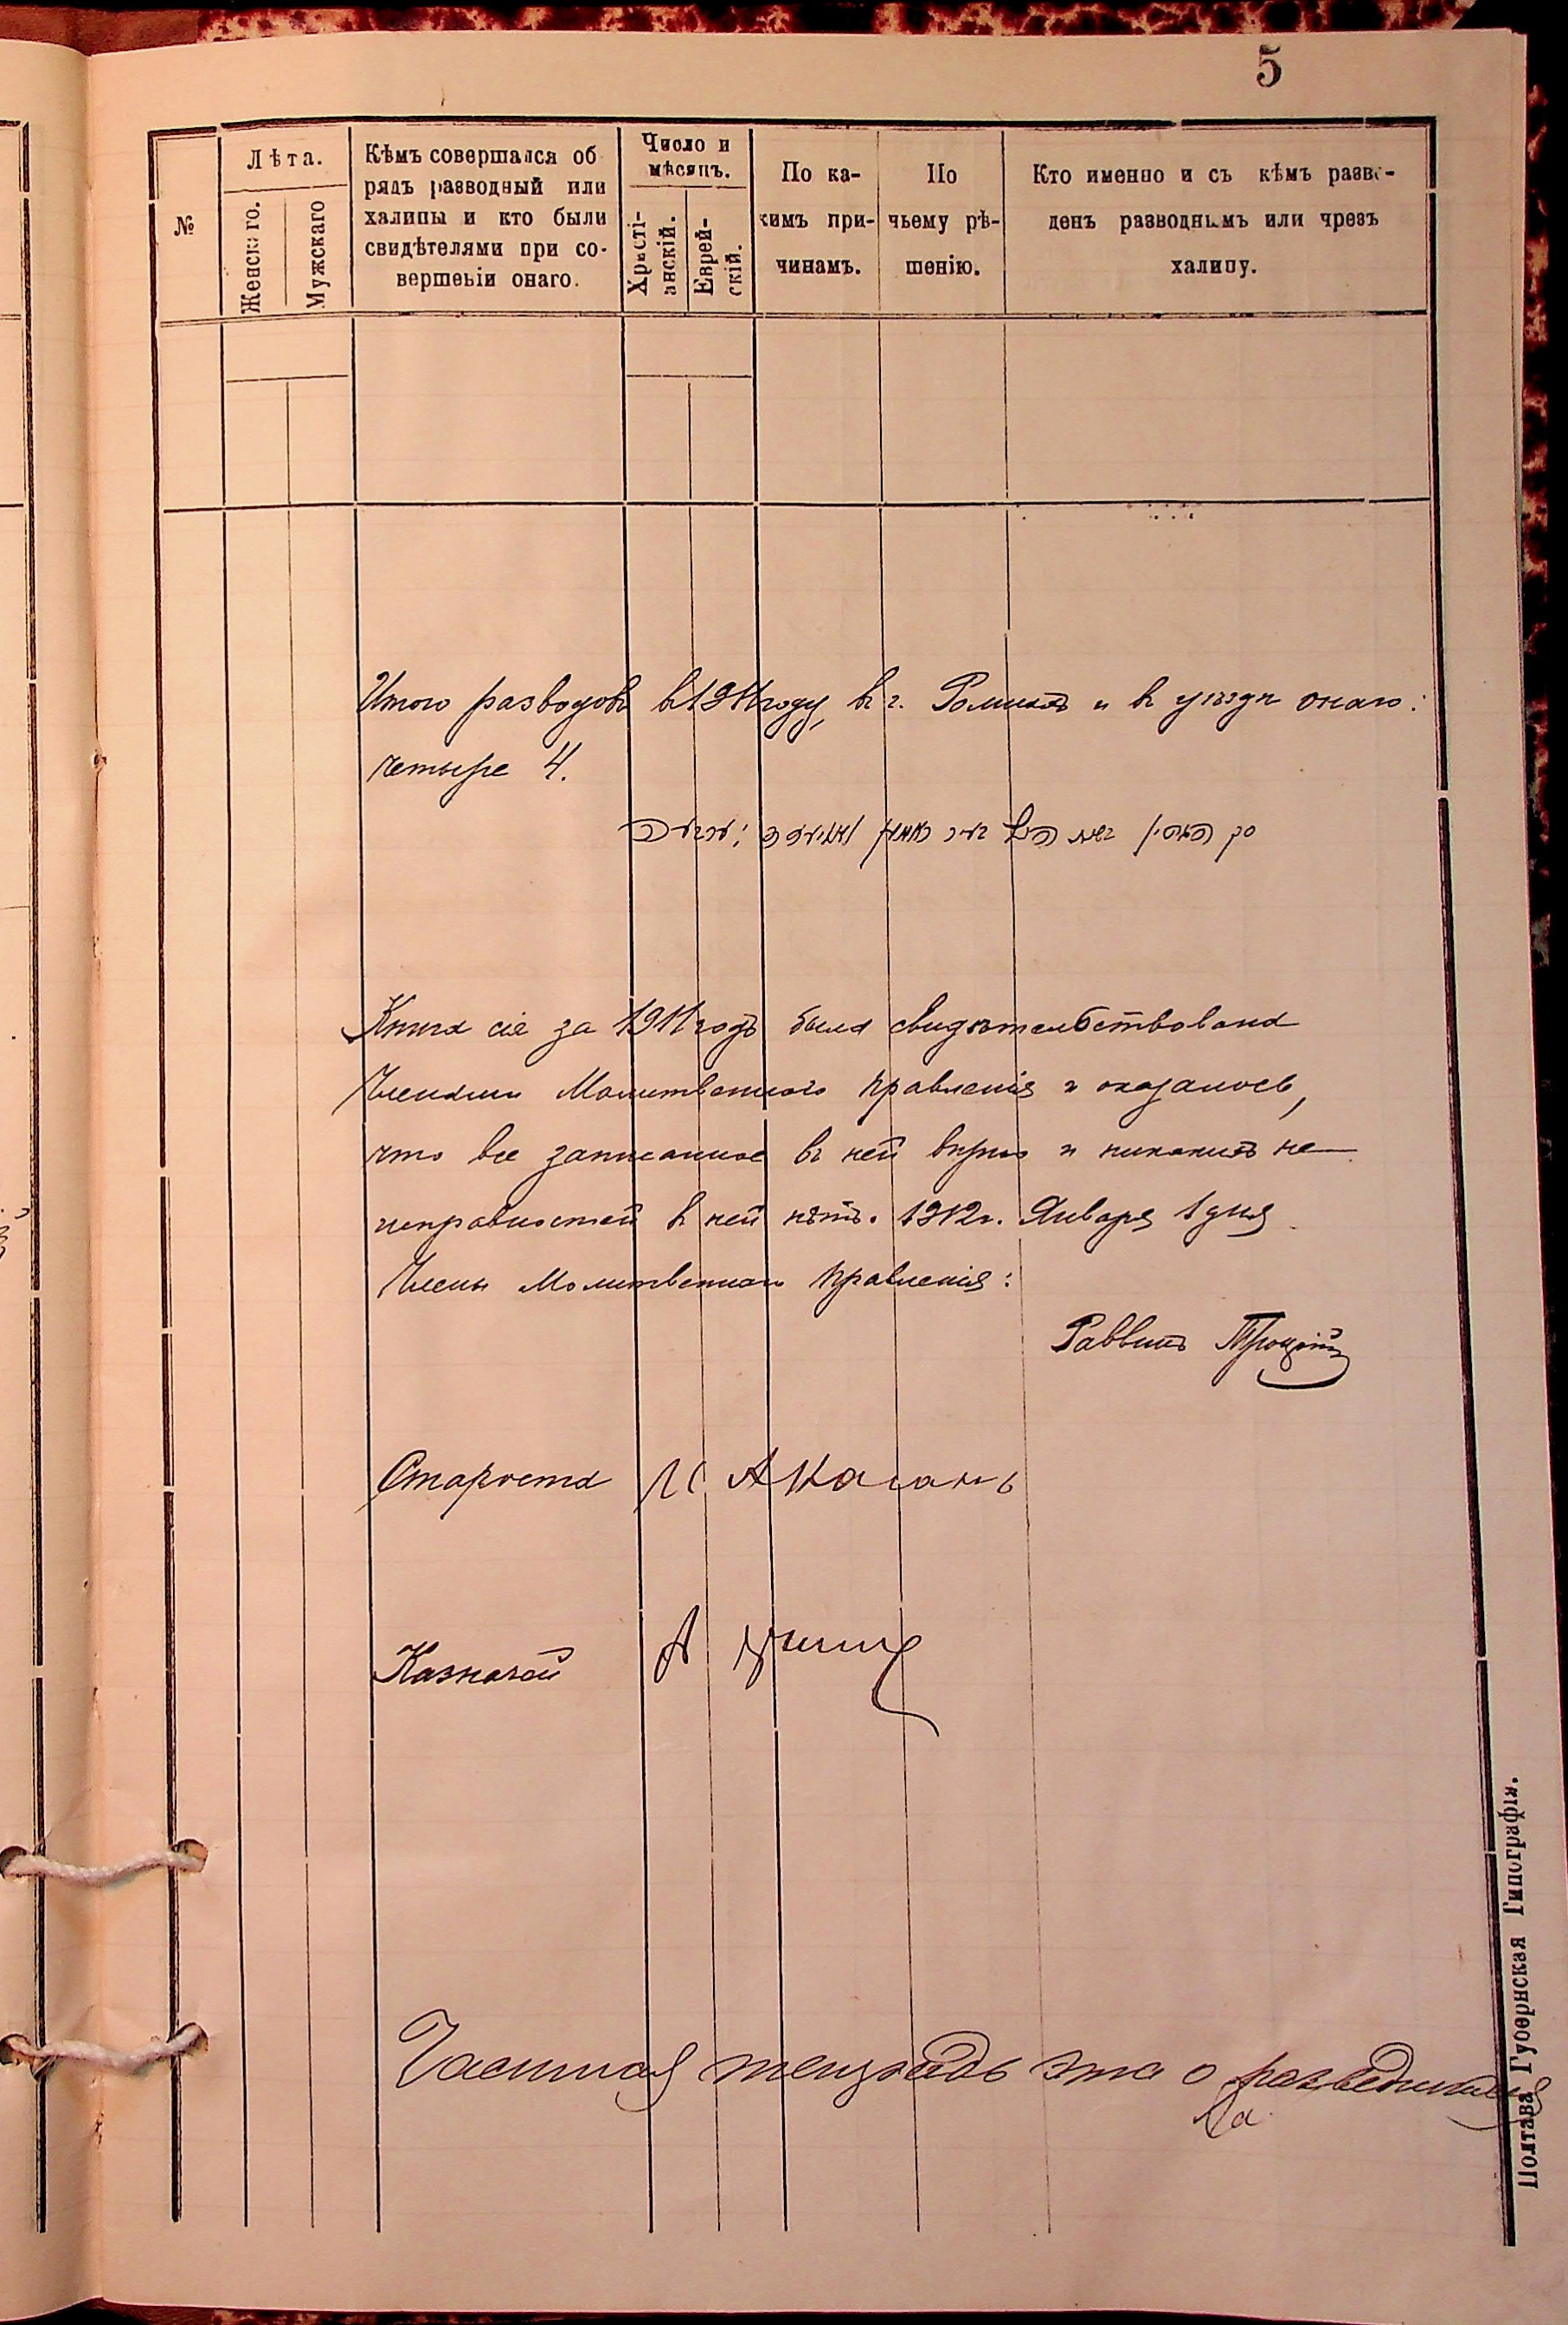 5
№
Лѣта.
Женскаго.
Мужскаго
Кѣмъ совершался об
рядъ разводный или
халицы и кто были
свидѣтелями при со-
вершеніи онаго.
Число и
мѣсяцъ.
Христі-
анскій.
Еврей-
скій.
По ка-
кимъ при-
чинамъ.
По
чьему рѣ-
шенію.
Кто именно и съ кѣмъ разве-
денъ разводнымъ или чрезъ
халицу.
Итого разводовъ въ 1911 году, въ г. Ромнахъ и въ уѣздѣ онаго:
четыре 4.
Книга сія за 1911 годъ была свидѣтельствована
Членами Молитвеннаго Правленія и оказалось,
что все записанное въ ней вѣрно и никакихъ не-
исправностей въ ней нѣтъ. 1912 г. Января 1 дня
Члены Молитвеннаго Правленія:
Раввинъ Троцкій
Староста А Каганъ
Казначей А
Частная тетрадь эта о разведшихся
за
Полтава Губернская Типографія.